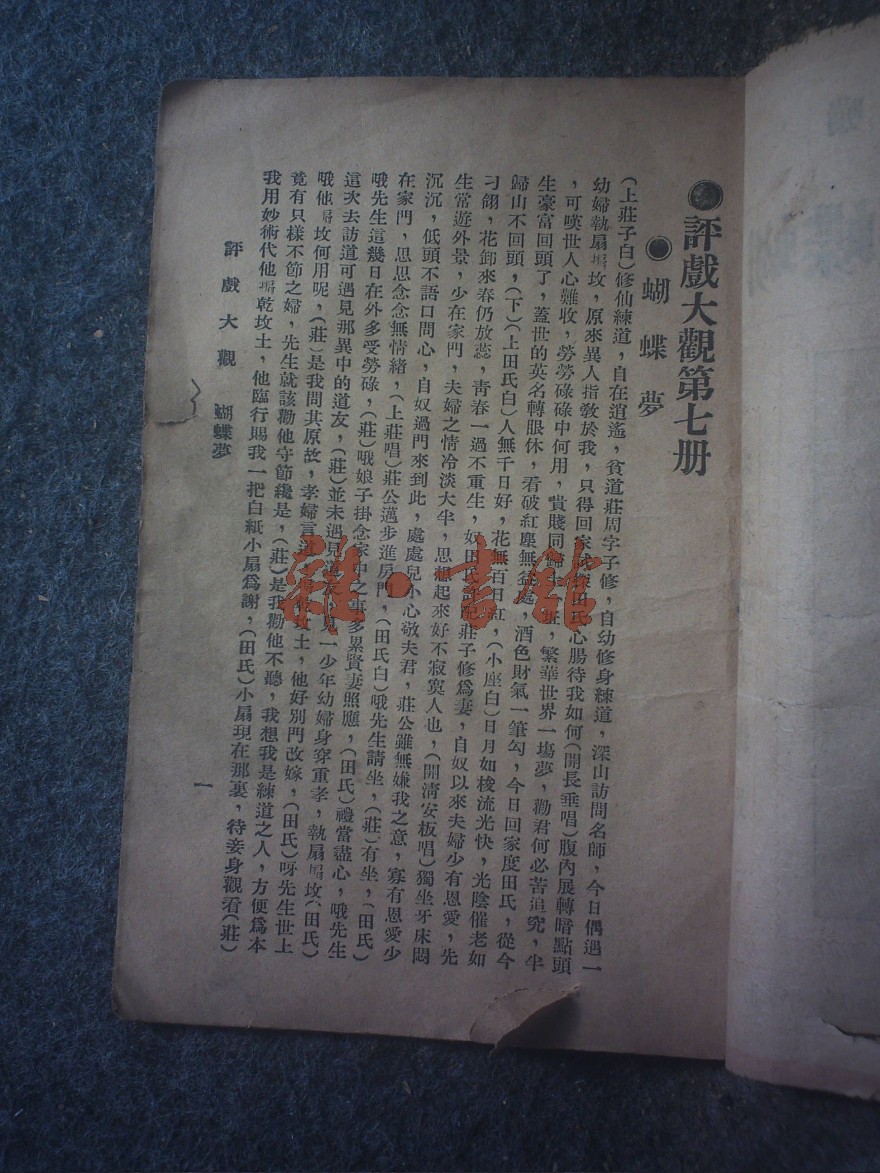 ●評戲大觀第七册
●蝴蝶夢
(上莊子白)修仙練道，自在逍遙，貧道莊周字子修，自幼修身練道，深山訪問名師，今日偶遇一
幼婦執扇搧坟，原來異人指敎於我，只得回家試探田氏心腸待我如何(開長垂唱)腹內展轉暗點頭
，可嘆世人心難收，勞勞碌碌中何用，貴賤同歸土一坵，繁華世界一塲夢，勸君何必苦追究，半
生豪富回頭了，蓋世的英名轉眼休，看破紅塵無益處，酒色財氣一筆勾，今日回家度田氏，從今
歸山不回頭，(下)(上田氏白)人無千日好，花無百日紅，(小座白)日月如梭流光快，光陰催老如
刁翎，花卸來春仍放蕊，靑春一過不重生，奴田氏許配莊子修爲妻，自奴以來夫婦少有恩愛，先
生常遊外景，少在家門，夫婦之情冷淡大半，思想起來好不寂寞人也，(開淸安板唱)獨坐牙床悶
沉沉，低頭不語口問心，自奴過門來到此，處處兒小心敬夫君，莊公雖無嫌我之意，寡有恩愛少
在家門，思思念念無情緒，(上莊唱)莊公邁步進房門，(田氏白)哦先生請坐，(莊)有坐，(田氏)
哦先生這幾日在外多受勞碌，(莊)哦娘子掛念家中之事多累賢妻照應，(田氏)禮當盡心，哦先生
這次去訪道可遇見那異中的道友，(莊)並未遇見道友遇見一少年幼婦身穿重孝，執扇搧坟(田氏)
哦他搧坟何用呢，(莊)是我問其原故，孝婦言道坟土，他好別門改嫁，(田氏)呀先生世上
竟有只樣不節之婦，先生就該勸他守節纔是，(莊)是我勸他不聽，我想我是練道之人，方便爲本
我用妙術代他搧乾坟土，他臨行賜我一把白紙小扇爲謝，(田氏)小扇現在那裏，待妾身觀看(莊)
評戲大觀　蝴蝶夢
一
雜·書館